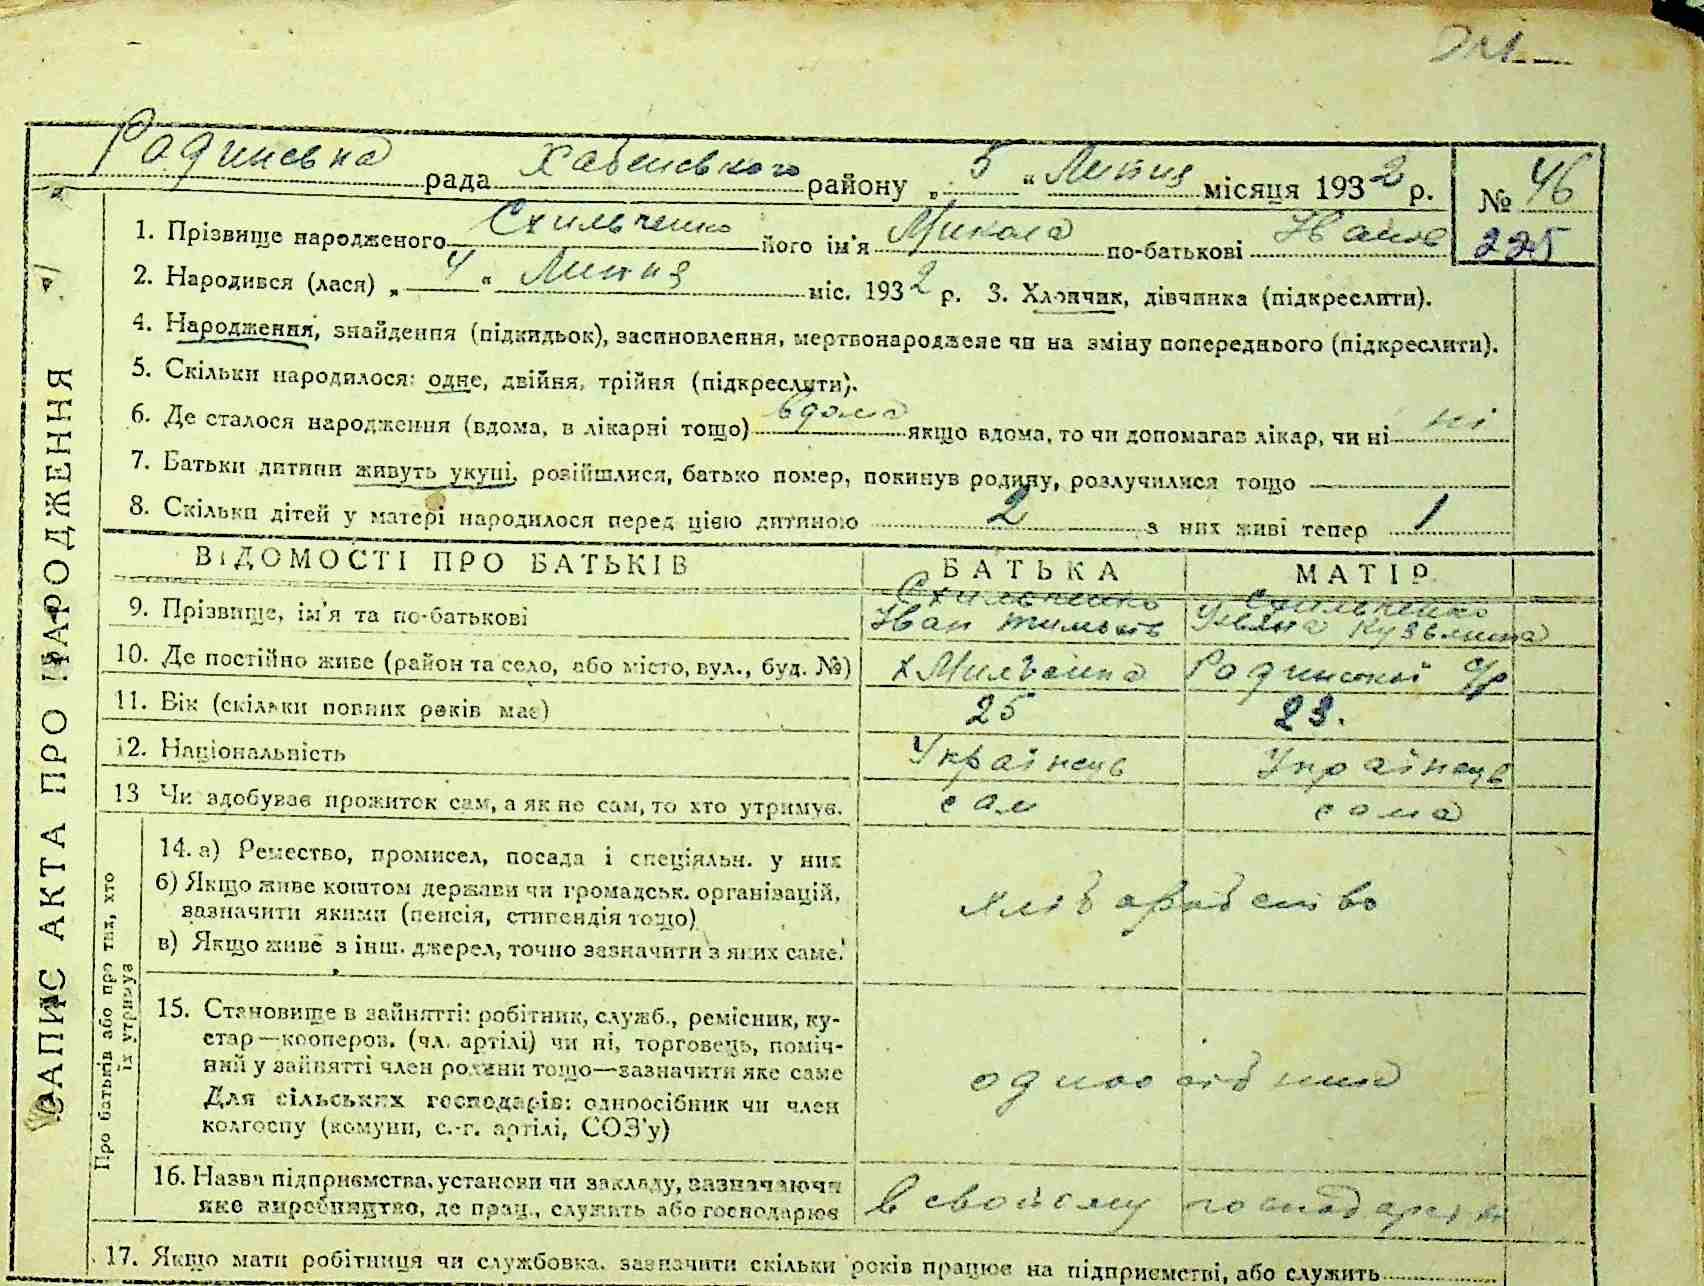 Радинська рада Хабенського району „ 5 “ Липня місяця 1932 р. № 46
1. Прізвище народженого Схильченко його ім'я Микола по-батькові Іванов 225
2. Народився (лася) „ 4 “ Липня міс. 1932 р. 3. Хлопчик, дівчинка (підкреслити).
4. Народження, знайдення (підкидьок), засиновлення, мертвонароджене чи на зміну попереднього (підкреслити).
5. Скільки народилося: одне, двійня, трійня (підкреслити).
6. Де сталося народження (вдома, в лікарні тощо) вдома якщо вдома, то чи допомагав лікар, чи ні ні
7. Батьки дитини живуть укупі, розійшлися, батько помер, покинув родину, розлучилися тощо
8. Скільки дітей у матері народилося перед цією дитиною 2 з них живі тепер 1
ЗАПИС АКТА ПРО НАРОДЖЕННЯ
ВІДОМОСТІ ПРО БАТЬКІВ БАТЬКА МАТІР
Схильченко Схильченко
9. Прізвище, ім'я та по-батькові Іван Кузьмина
10. Де постійно живе (район та село, або місто, вул., буд. №) х Радинської с/р
11. Вік (скільки повних років має) 25 23.
12. Національність Українець Українець
13 Чи здобуває прожиток сам, а як не сам, то хто утримує. сам сама
Про батьків або про тих, хто
їх утримує
14. а) Ремество, промисел, посада і спеціяльн. у них
б) Якщо живе коштом держави чи громадськ. організацій,
зазначити якими (пенсія, стипендія тощо)
хліборобство
в) Якщо живе з інш. джерел, точно зазначити з яких саме.
15. Становище в зайнятті: робітник, служб., ремісник, ку-
стар—кооперов. (чл. артілі) чи ні, торговець, поміч-
ний у зайнятті член родини тощо—зазначити яке саме
одноосібник
Для сільських господарів: одноосібник чи член
колгоспу (комуни, с.-г. артілі, СОЗ'у)
16. Назва підприємства, установи чи закладу, зазначаючи
яке виробництво, де прац., служить або господарює
в свойому господарстві
17. Якщо мати робітниця чи службовка, зазначити скільки років працює на підприємстві, або служить